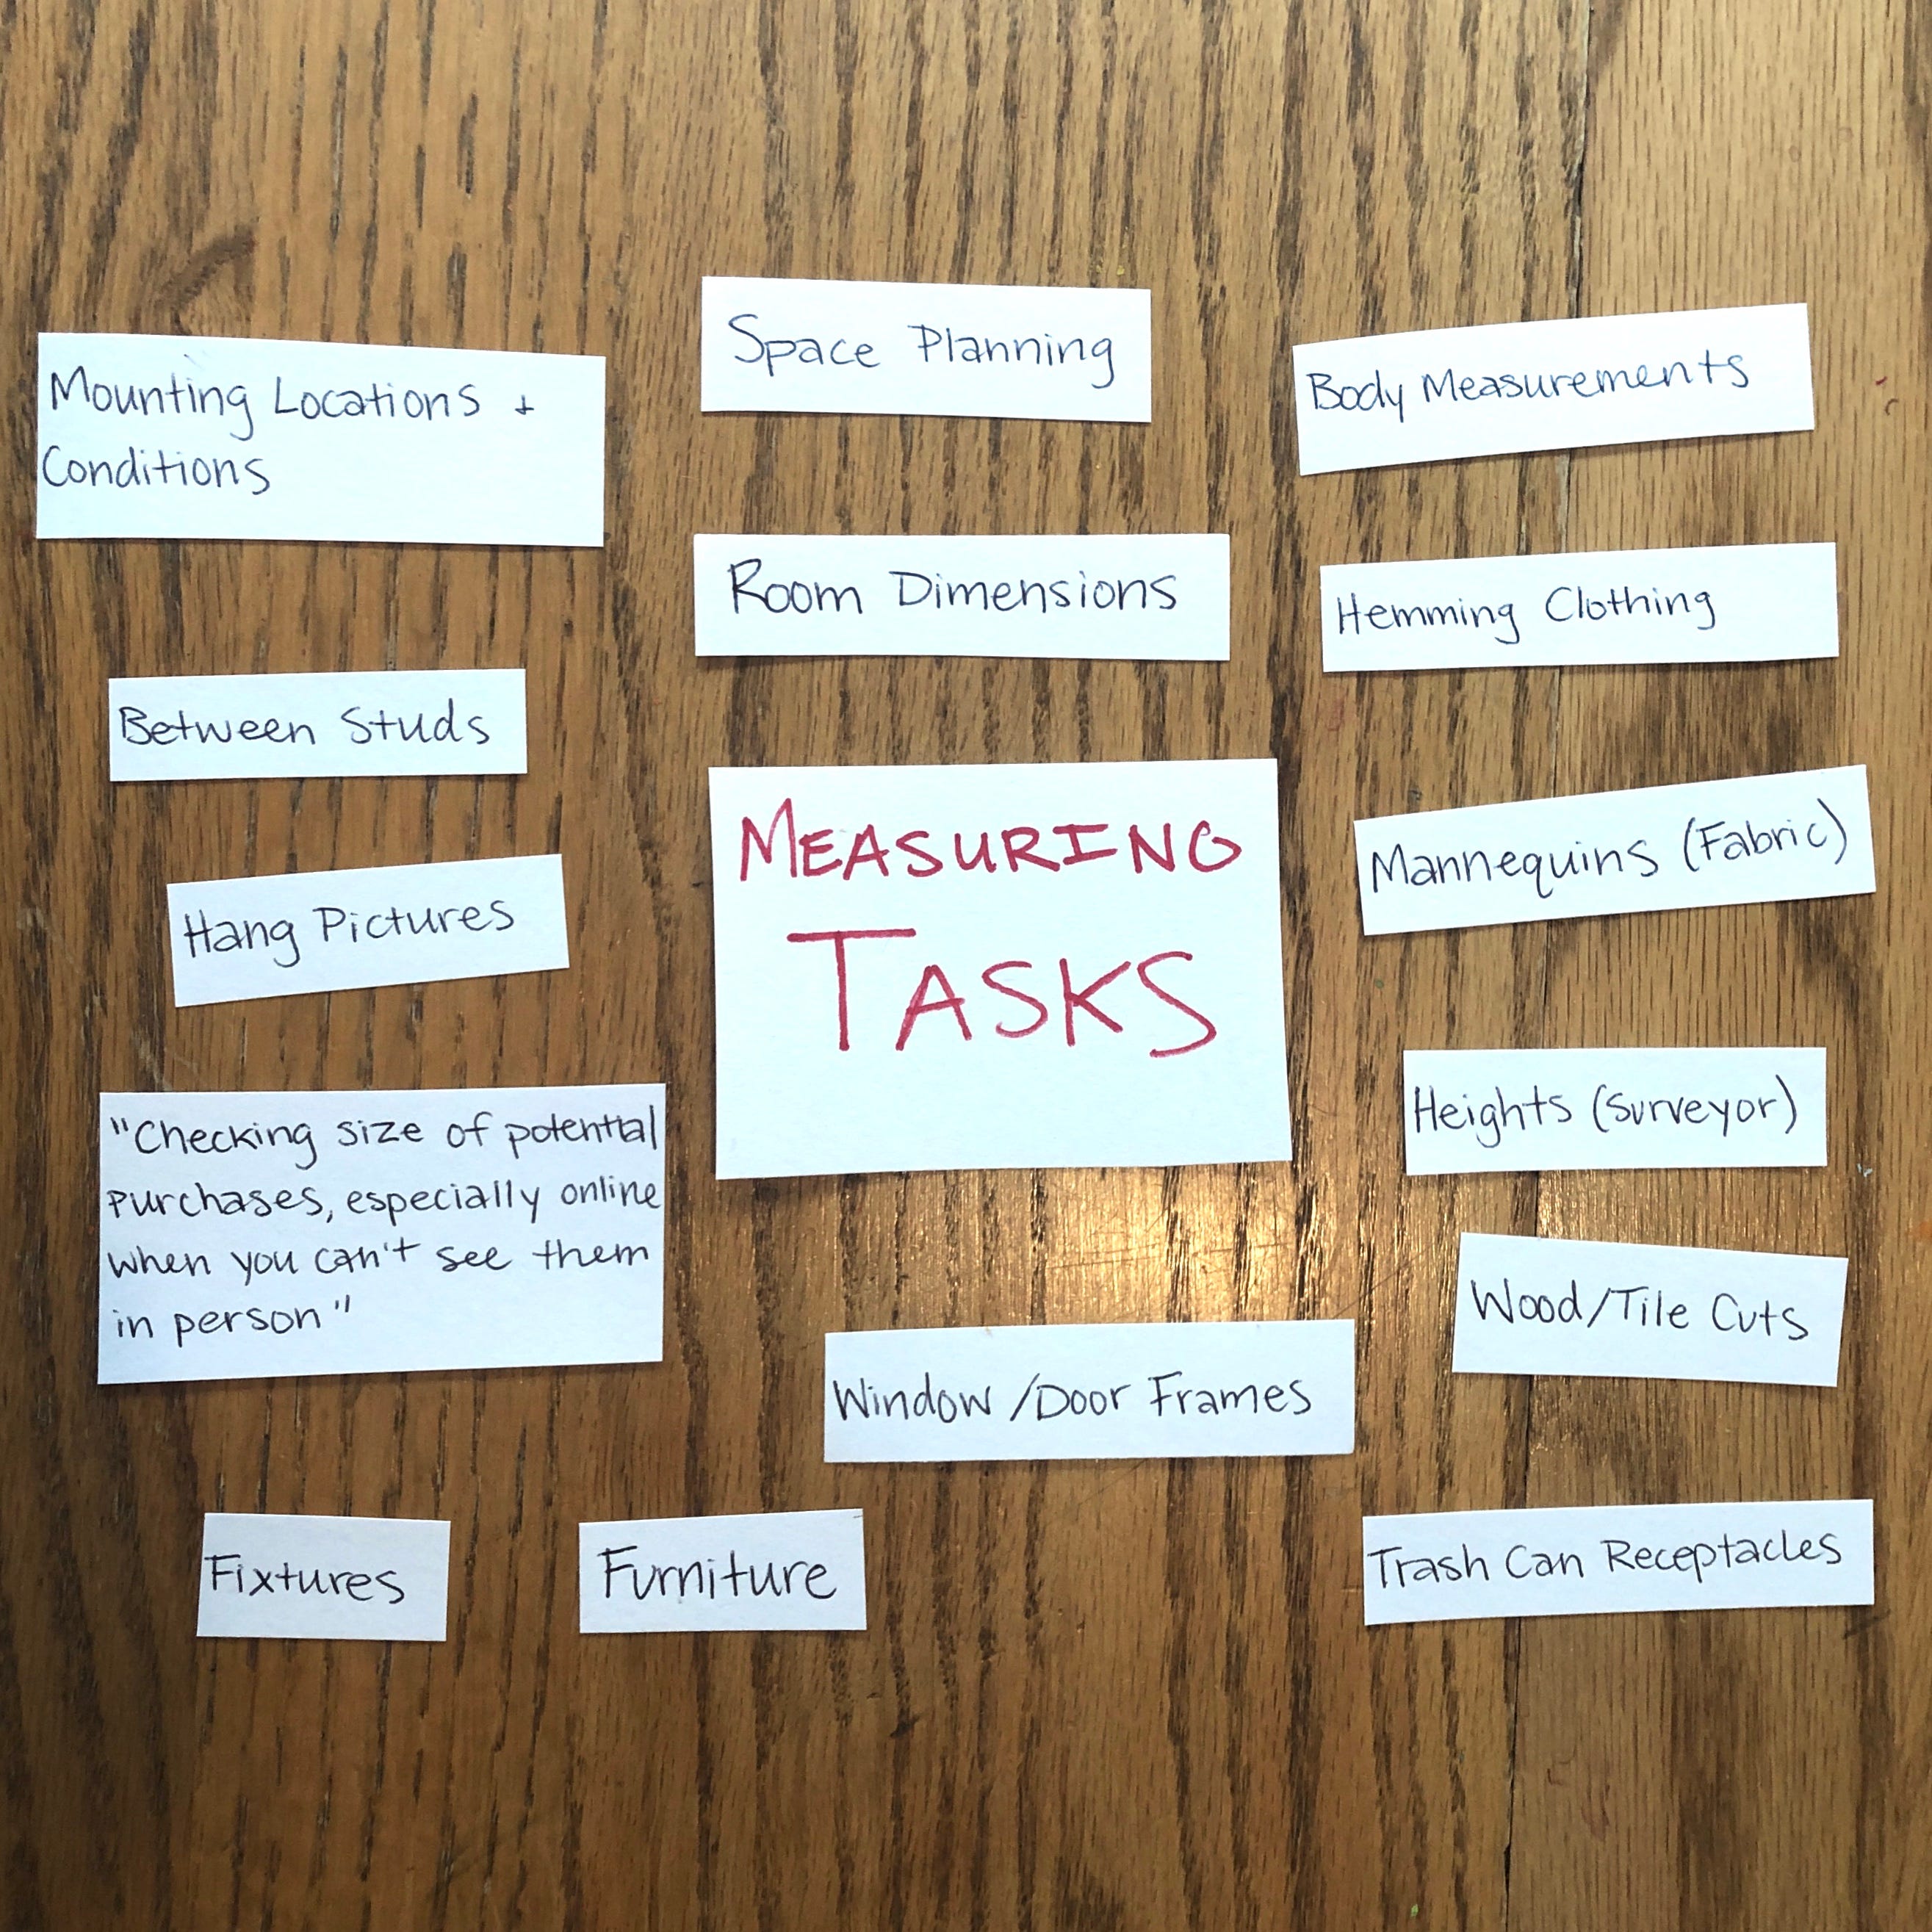 Space Planning
Mounting Locations +
Conditions
Body Measurements
Room Dimensions
Hemming Clothing
Between Studs
MEASURING
TASKS
Mannequins (Fabric)
Hang Pictures
Heights (Surveyor)
"Checking size of potential
purchases, especially online
when you can't see them
in person"
Wood/Tile Cuts
Window/Door Frames
Fixtures
Furniture
Trash Can Receptacles